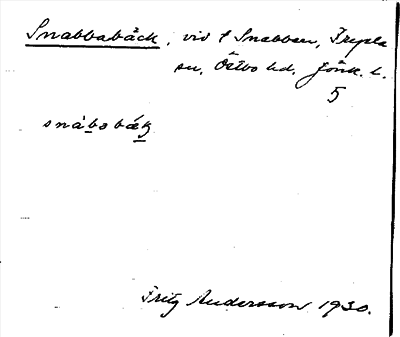 Snabbabäck, vid t Snabban, Trepla
sn, Östbo hd. Jönk. l.
5
snábabák
Fritz Andersson 1930.